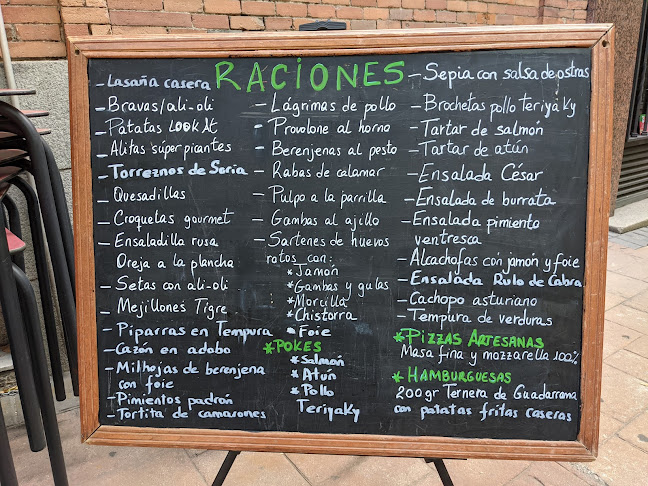 RACIONES
_ Lasaña casera
_ Bravas/ali-oli
_ Patatas LOOK At
_ Alitas súper picantes
_ Torreznos de Soria
_ Quesadillas
_ Croquetas gourmet
_ Ensaladilla rusa
Oreja a la plancha
_ Setas con ali-oli
_ Mejillones Tigre
_ Piparras en Tempura
_ Cazón en adobo
_ Milhojas de berenjena
con foie
_ Pimientos padrón
_ Tortita de camarones
_ Lágrimas de pollo
_ Provolone al horno
_ Berenjenas al pesto
_ Rabas de calamar
_ Pulpo a la parrilla
_ Gambas al ajillo
_ Sartenes de huevos
rotos con:
* Jamón
* Gambas y gulas
* Morcilla
* Chistorra
* Foie
* POKES
* Salmón
* Atún
* Pollo
Teriyaky
_ Sepia con salsa de ostras
_ Brochetas pollo teriyaky
_ Tartar de salmón
_ Tartar de atún
_ Ensalada César
_ Ensalada de burrata
_ Ensalada pimiento
ventresca
_ Alcachofas con jamón y foie
_ Ensalada Rulo de Cabra
_ Cachopo asturiano
_ Tempura de verduras
* PIZZAS ARTESANAS
Masa fina y mozzarella 100%
* HAMBURGUESAS
200gr Ternera de Guadarrama
con patatas fritas caseras